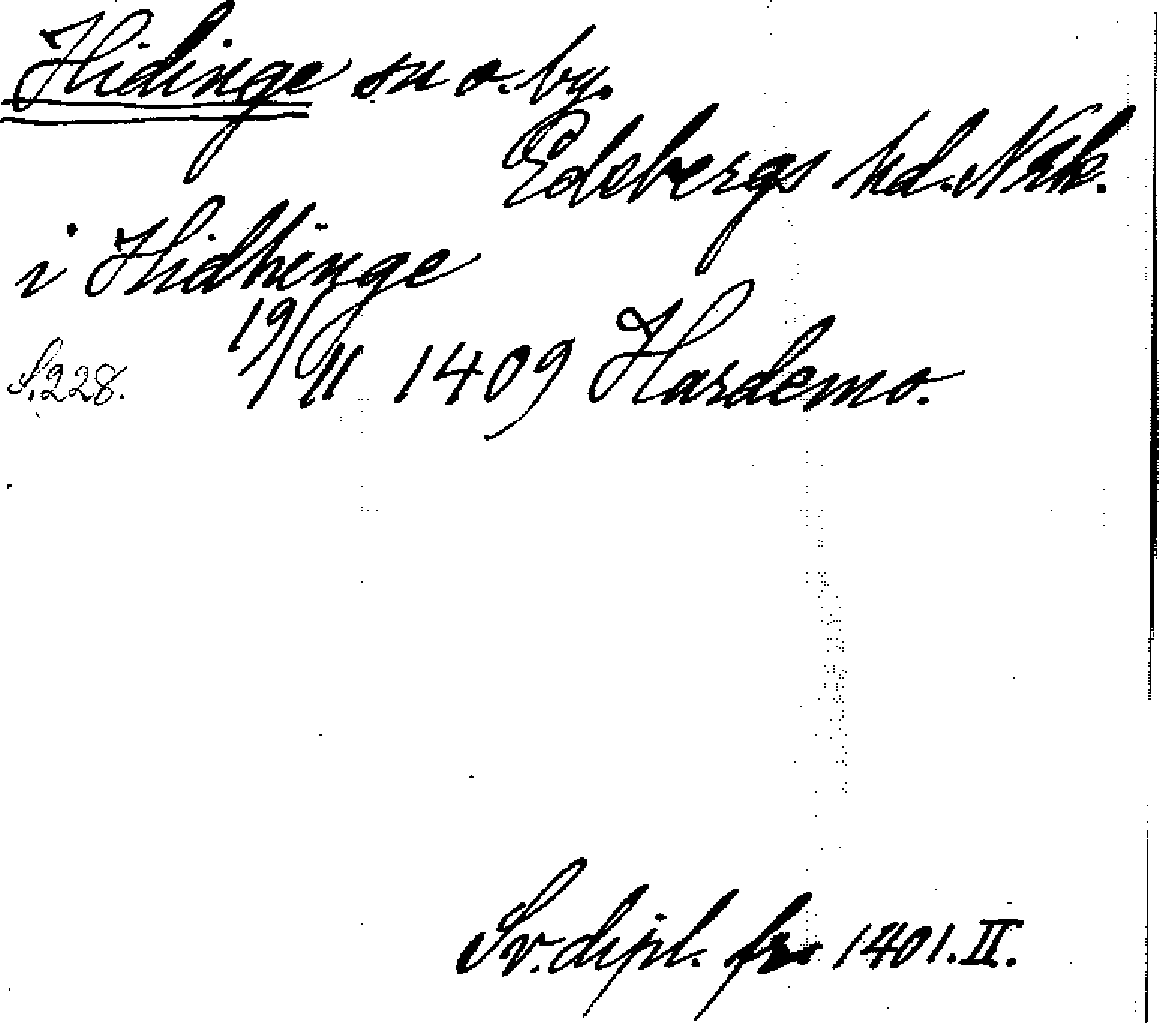 Hidinge sn o. by.
Edsbergs hd. Närk.
i Hidhinge
S. 228. 19/11 1409 Hardemo.
Sv. dipl. fr 1401. II.